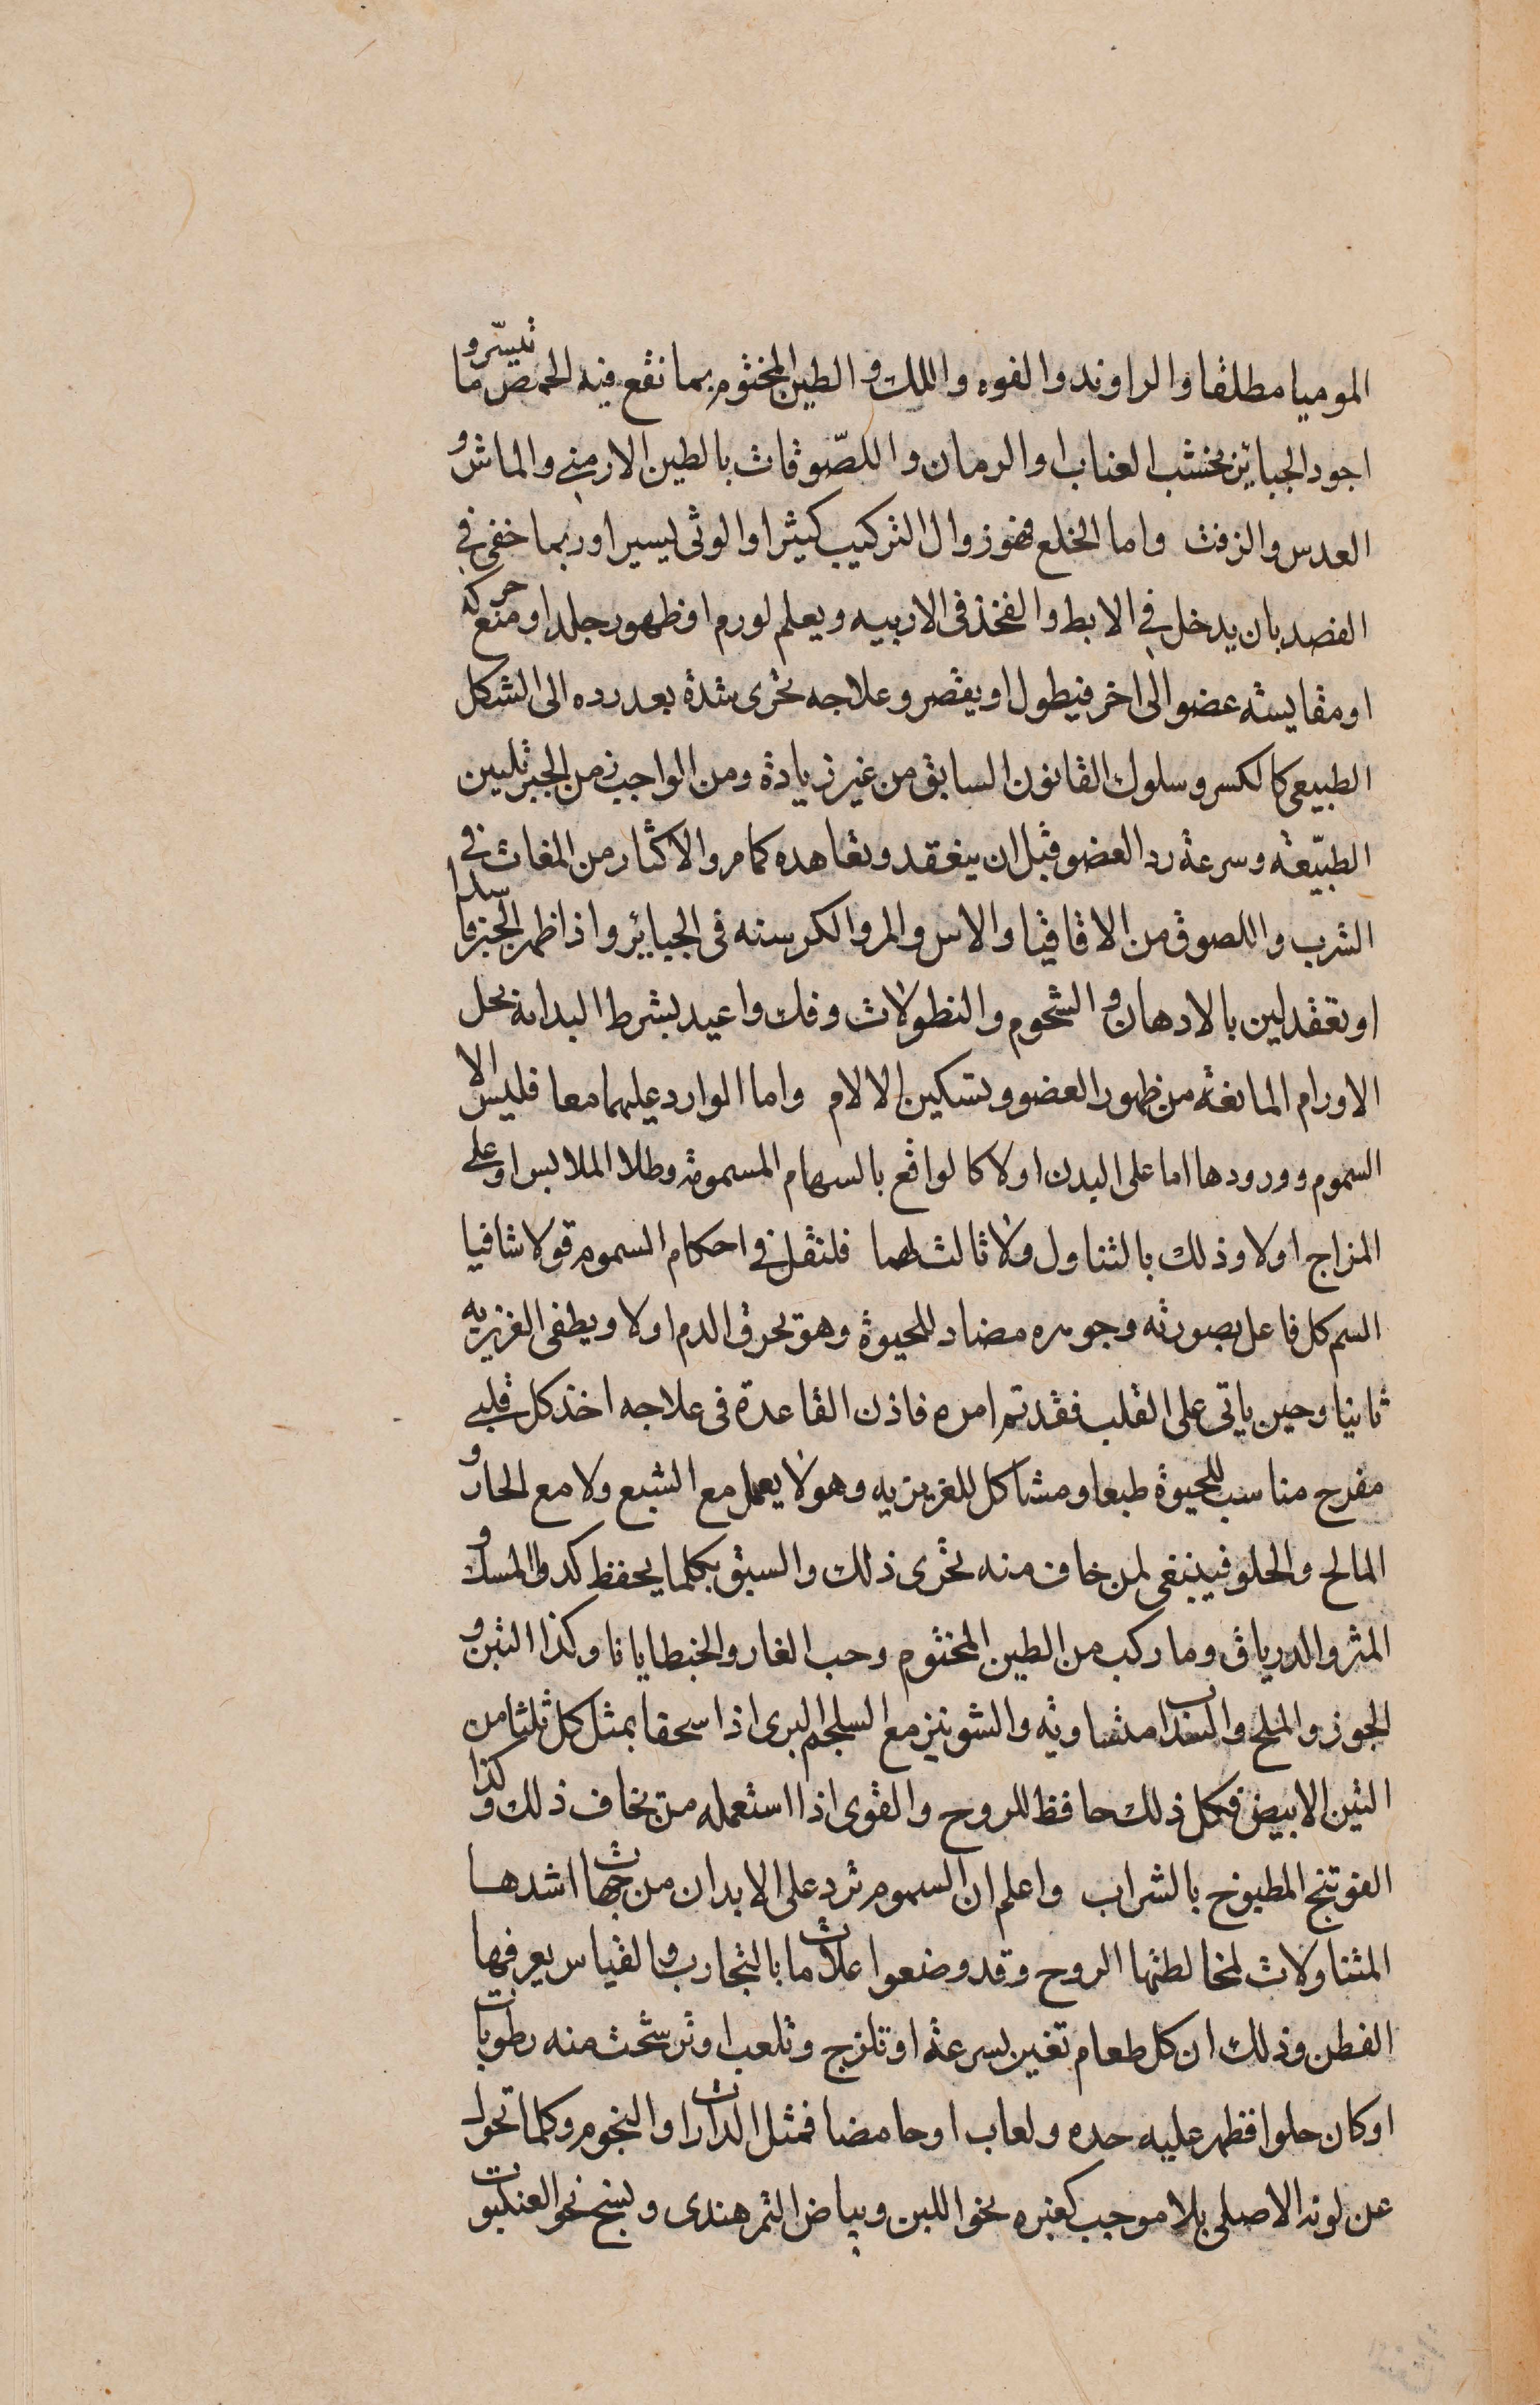 الموميا مطلقا والراوند والفوه واللك و الطين المختوم بما نقع فيه الحمص تيسّر وما
اجود الجبائر خشب العناب او الرمان واللصّوقات بالطين الارمنى والماش و
العدس والزفت واما الخلع فهو زوال التركيب كثيرا والوثى يسيرا وربما خفى فى
القصد بان يدخل فى الابط والفخذ فى الاربيه ويعلم لورم او ظهور جلد او منع حركه
او مقايسة عضو الى اخر فيطول او يقصر وعلاجه تحرى شدة بعد رده الى الشكل
الطبيعى كالكسر وسلوك القانون السابق من غير زيادة ومن الواجب زمن الجبر تليين
الطبيّعة وسرعة رد العضو قبل ان ينعقد وتعاهده كما مر والاكثار من المغاث فى
الشرب واللصوق من الاقاقيا والاس والمر والكرسنه فى الجبائر واذا ظهر الجبر فاسدا
او تعقد لين بالادهان و الشحوم والنطولات وفك واعيد بشرط البداءة بحل
الاورام المانعة من ظهور العضو وتسكين الالام واما الوارد عليهما معا فليس الا
السموم وورودها اما على البدن اولا كالواقع بالسهام المسمومة وطلا الملابس او على
المزاج اولا وذلك بالتناول ولا ثالث لهما فلنقل فى احكام السموم قولا شافيا
السم كل فاعل بصورته وجوهره مضاد للحيوة وهو يحرق الدم اولا ويطفى الغزيريه
ثانيا وحين ياتى على القلب فقد تم امره فاذن القاعدة فى علاجه اخذ كل قلبى
مفرح مناسب للحيوة طبعا ومشاكل للغريزيه وهو لا يعمل مع الشبع ولا مع الحار و
المالح والحلو فينبغى لمن خاف منه تحرى ذلك والسبق بكلما يحفظ كدوا المسك و
المثر والدرياق وما ركب من الطين المختوم وحب الغار والجنطايانا وكذا التين و
الجوز والملح والسذاب متساوية والشونيز مع السلجم البرى اذا سحقا بمثل كل ثلثا من
التين الابيض فكل ذلك حافظ للروح والقوى اذا استعمله من يخاف ذلك وكذا
الفوتنج المطبوخ بالشراب واعلم ان السموم ترد على الابدان من جهات اشدها
المتناولات لمخالطتها الروح وقد وضعوا علامات بالتجارب والقياس يعرفها
الفطن وذلك ان كل طعام تغير بسرعة او تلزج وتلعب او ترشحت منه رطوبات
او كان حلوا فظهر عليه حده ولعاب او حامضا فمثل الدارات او النجوم وكلما تحول
عن لونه الاصلى بلا موجب كغبره نحو اللبن وبياض التمر هندى ونسج نحو العنكبوت